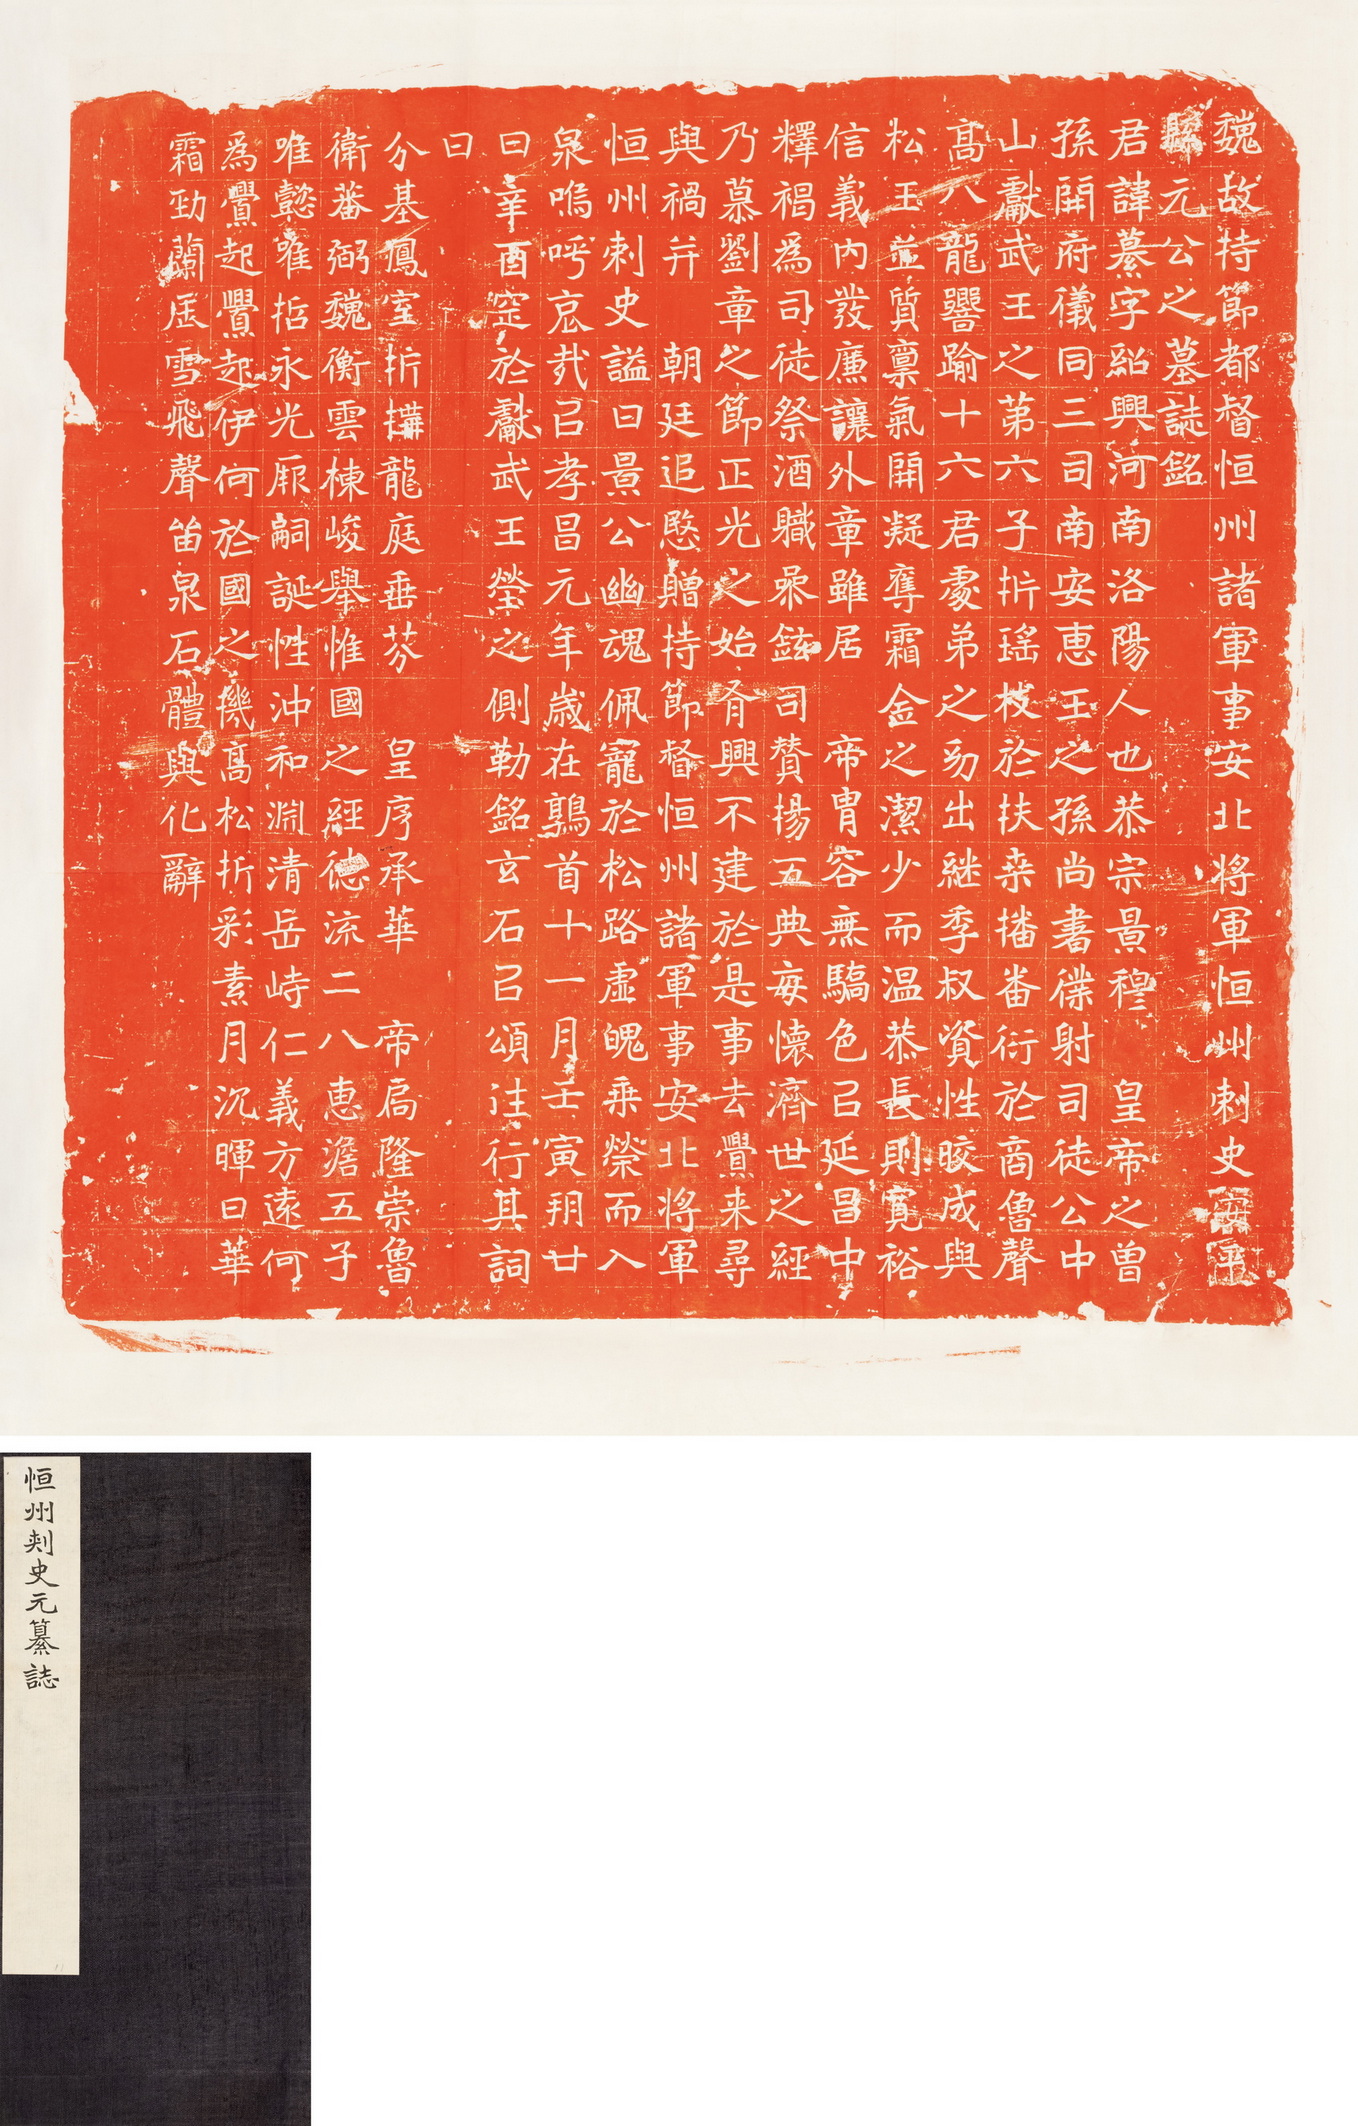 魏故持節都督恒州諸軍事安北將軍恒州刺史安平
縣元公之墓誌銘
君諱纂字紹興河南洛陽人也恭宗景穆 皇帝之曾
孫開府儀同三司南安惠王之孫尚書僕射司徒公中
山獻武王之第六子折瑤枝於扶桒播番衍於商魯聲
高八龍響踰十六君處弟之幼出継季叔資性晈成與
松王並質稟氣開凝奪霜金之潔少而温恭長則寬裕
信義內發廉讓外章雖居 帝胄容無驕色㠯延昌中
釋褐為司徒祭酒職叅鉉司贊揚五典每懷濟世之經
乃慕劉章之節正光之始有興不建於是事去舋来尋
與禍并 朝廷追愍贈持節督恒州諸軍事安北將軍
恒州刺史謚曰景公幽魂佩寵於松路虛魄乘榮而入
泉嗚呼哀㦲㠯孝昌元年歲在鶉首十一月壬寅朔廿
日辛酉窆於獻武王塋之側勒銘玄石㠯頌往行其詞
曰
分基鳳室折搆龍庭垂芬 皇序承華 帝扃隆崇魯
衛蕃弼魏衡雲棟峻舉惟國之經德流二八惠澹五子
唯懿唯哲永光厥嗣誕性沖和淵清岳峙仁義方遠何
為舋起舋起伊何於國之機高松折彩素月沉暉日華
霜勁蘭庭雪飛聲留泉石體與化辭
恒州刾史元纂誌